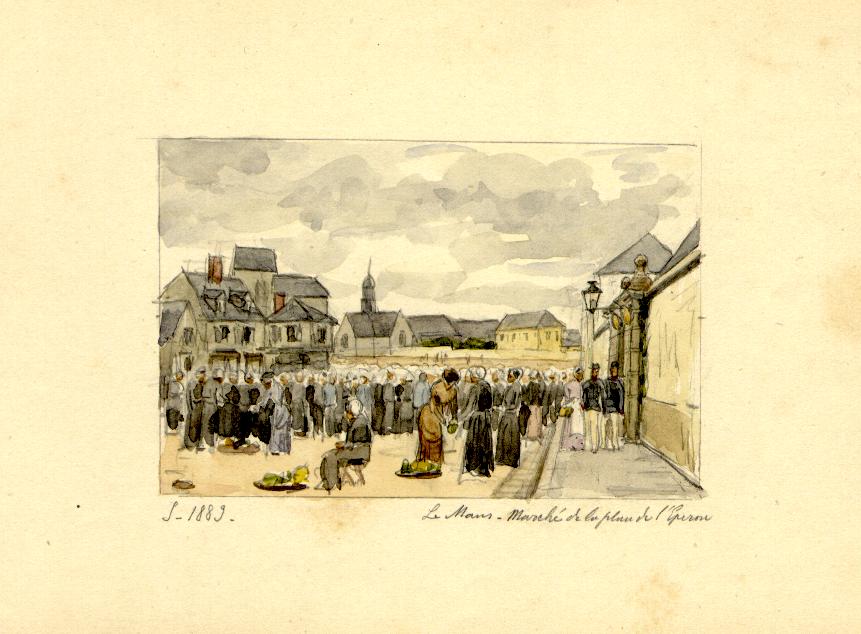 S - 1883 -
Le Mans - Marché de la place de l'Eperon